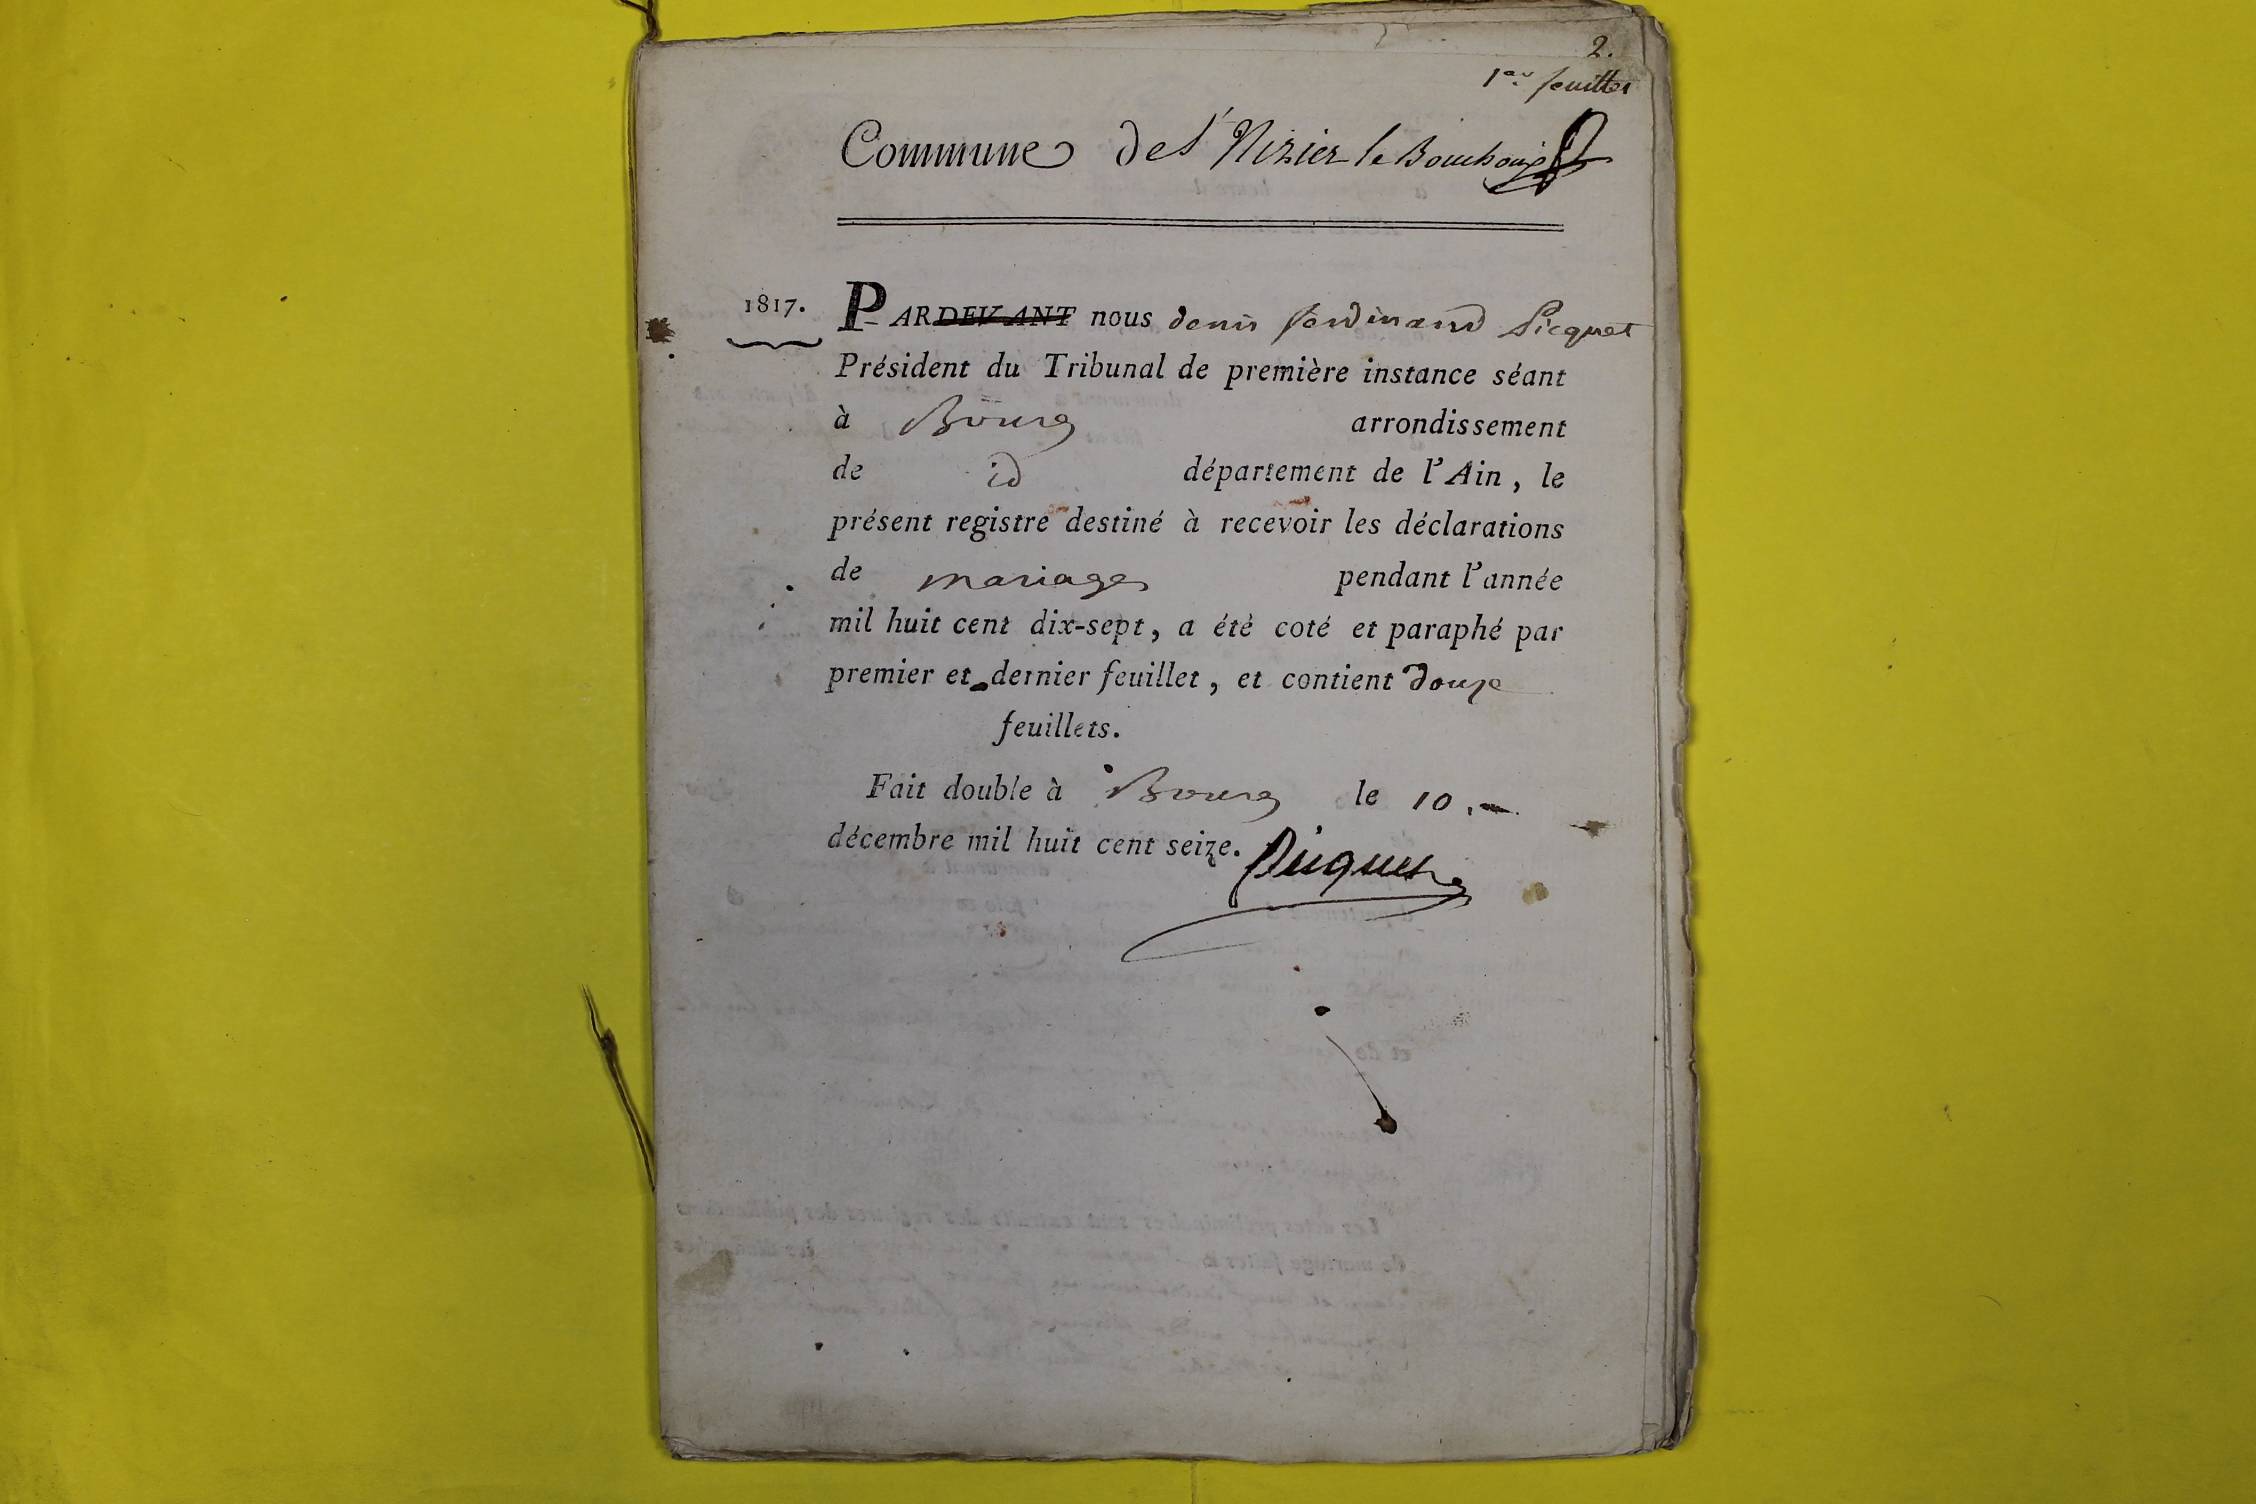 2.
1er feuillet
Commune de St Nizier le Bouchoux
1817. PARDEVANT nous denis ferdinand Picquet
Président du Tribunal de première instance séant
à Bourg arrondissement
de id département de l'Ain, le
présent registre destiné à recevoir les déclarations
de mariages pendant l'année
mil huit cent dix-sept, a été coté et paraphé par
premier et dernier feuillet, et contient douze
feuillets.
Fait double à Bourg le 10.
décembre mil huit cent seize. Picquet